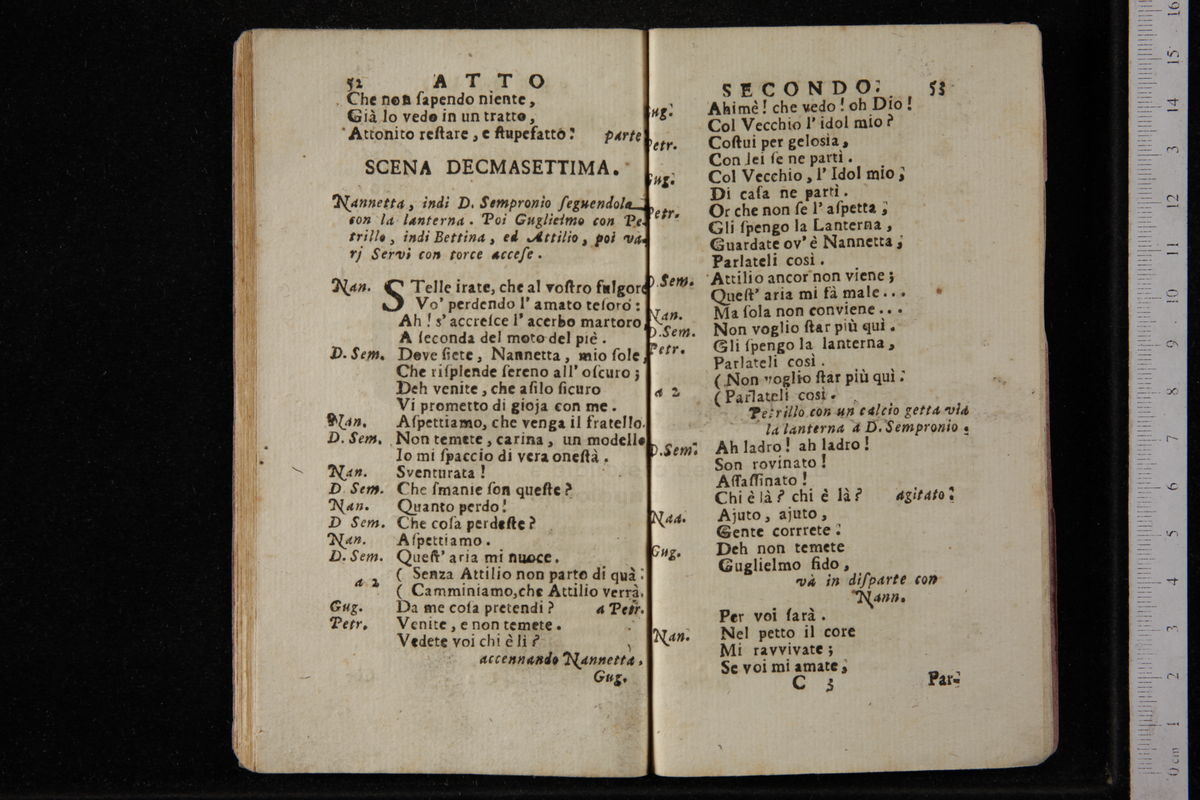 52 ATTO
Che non ſapendo niente,
Già lo vedo in un tratto,
Attonito reſtare, e ſtupefatto. parte
SCENA DECMASETTIMA.
Nannetta, indi D. Sempronio ſeguendola
con la lanterna. Poi Guglielmo con Pe-
trillo, indi Bettina, ed Attilio, poi va-
rj Servi con torce acceſe.
Nan. STelle irate, che al voſtro fulgore
Vo' perdendo l' amato teſoro:
Ah! s' accreſce l' acerbo martoro
A ſeconda del moto del piè.
D. Sem. Dove ſiete, Nannetta, mio ſole,
Che riſplende ſereno all' oſcuro;
Deh venite, che aſilo ſicuro
Vi prometto di gioja con me.
Nan. Aſpettiamo, che venga il fratello.
D. Sem. Non temete, carina, un modello
Io mi ſpaccio di vera oneſtà.
Nan. Sventurata!
D. Sem. Che ſmanie ſon queſte?
Nan. Quanto perdo!
D Sem. Che coſa perdeſte?
Nan. Aſpettiamo.
D. Sem. Queſt' aria mi nuoce.
a 2 ( Senza Attilio non parto di quà.
( Camminiamo, che Attilio verrà.
Gug. Da me coſa pretendi? a Petr.
Petr. Venite, e non temete.
Vedete voi chi è lì?
accennando Nannetta,
Gug.
SECONDO. 53
Gug. Ahimè! che vedo! oh Dio!
Col Vecchio l' idol mio?
Petr. Coſtui per geloſia,
Con lei ſe ne partì.
Gug. Col Vecchio, l' Idol mio;
Di caſa ne partì.
Petr. Or che non ſe l' aſpetta;
Gli ſpengo la Lanterna,
Guardate ov' è Nannetta;
Parlateli così.
D. Sem. Attilio ancor non viene;
Queſt' aria mi fà male...
Nan. Ma ſola non conviene...
D. Sem. Non voglio ſtar più quì.
Petr. Gli ſpengo la lanterna,
Parlateli così.
a 2 ( Non voglio ſtar più quì.
( Parlateli così.
Petrillo con un calcio getta via
la lanterna a D. Sempronio.
D. Sem. Ah ladro! ah ladro!
Son rovinato!
Aſſaſſinato!
Chi è là? chi è là? agitato.
Naa. Ajuto, ajuto,
Gente corrrete.
Gug. Deh non temete
Guglielmo fido,
và in diſparte con
Nann.
Per voi ſarà.
Nan. Nel petto il core
Mi ravvivate;
Se voi mi amate,
C 3 Par-
16
15
14
13
12
11
10
9
8
7
6
5
4
3
2
1
0 cm